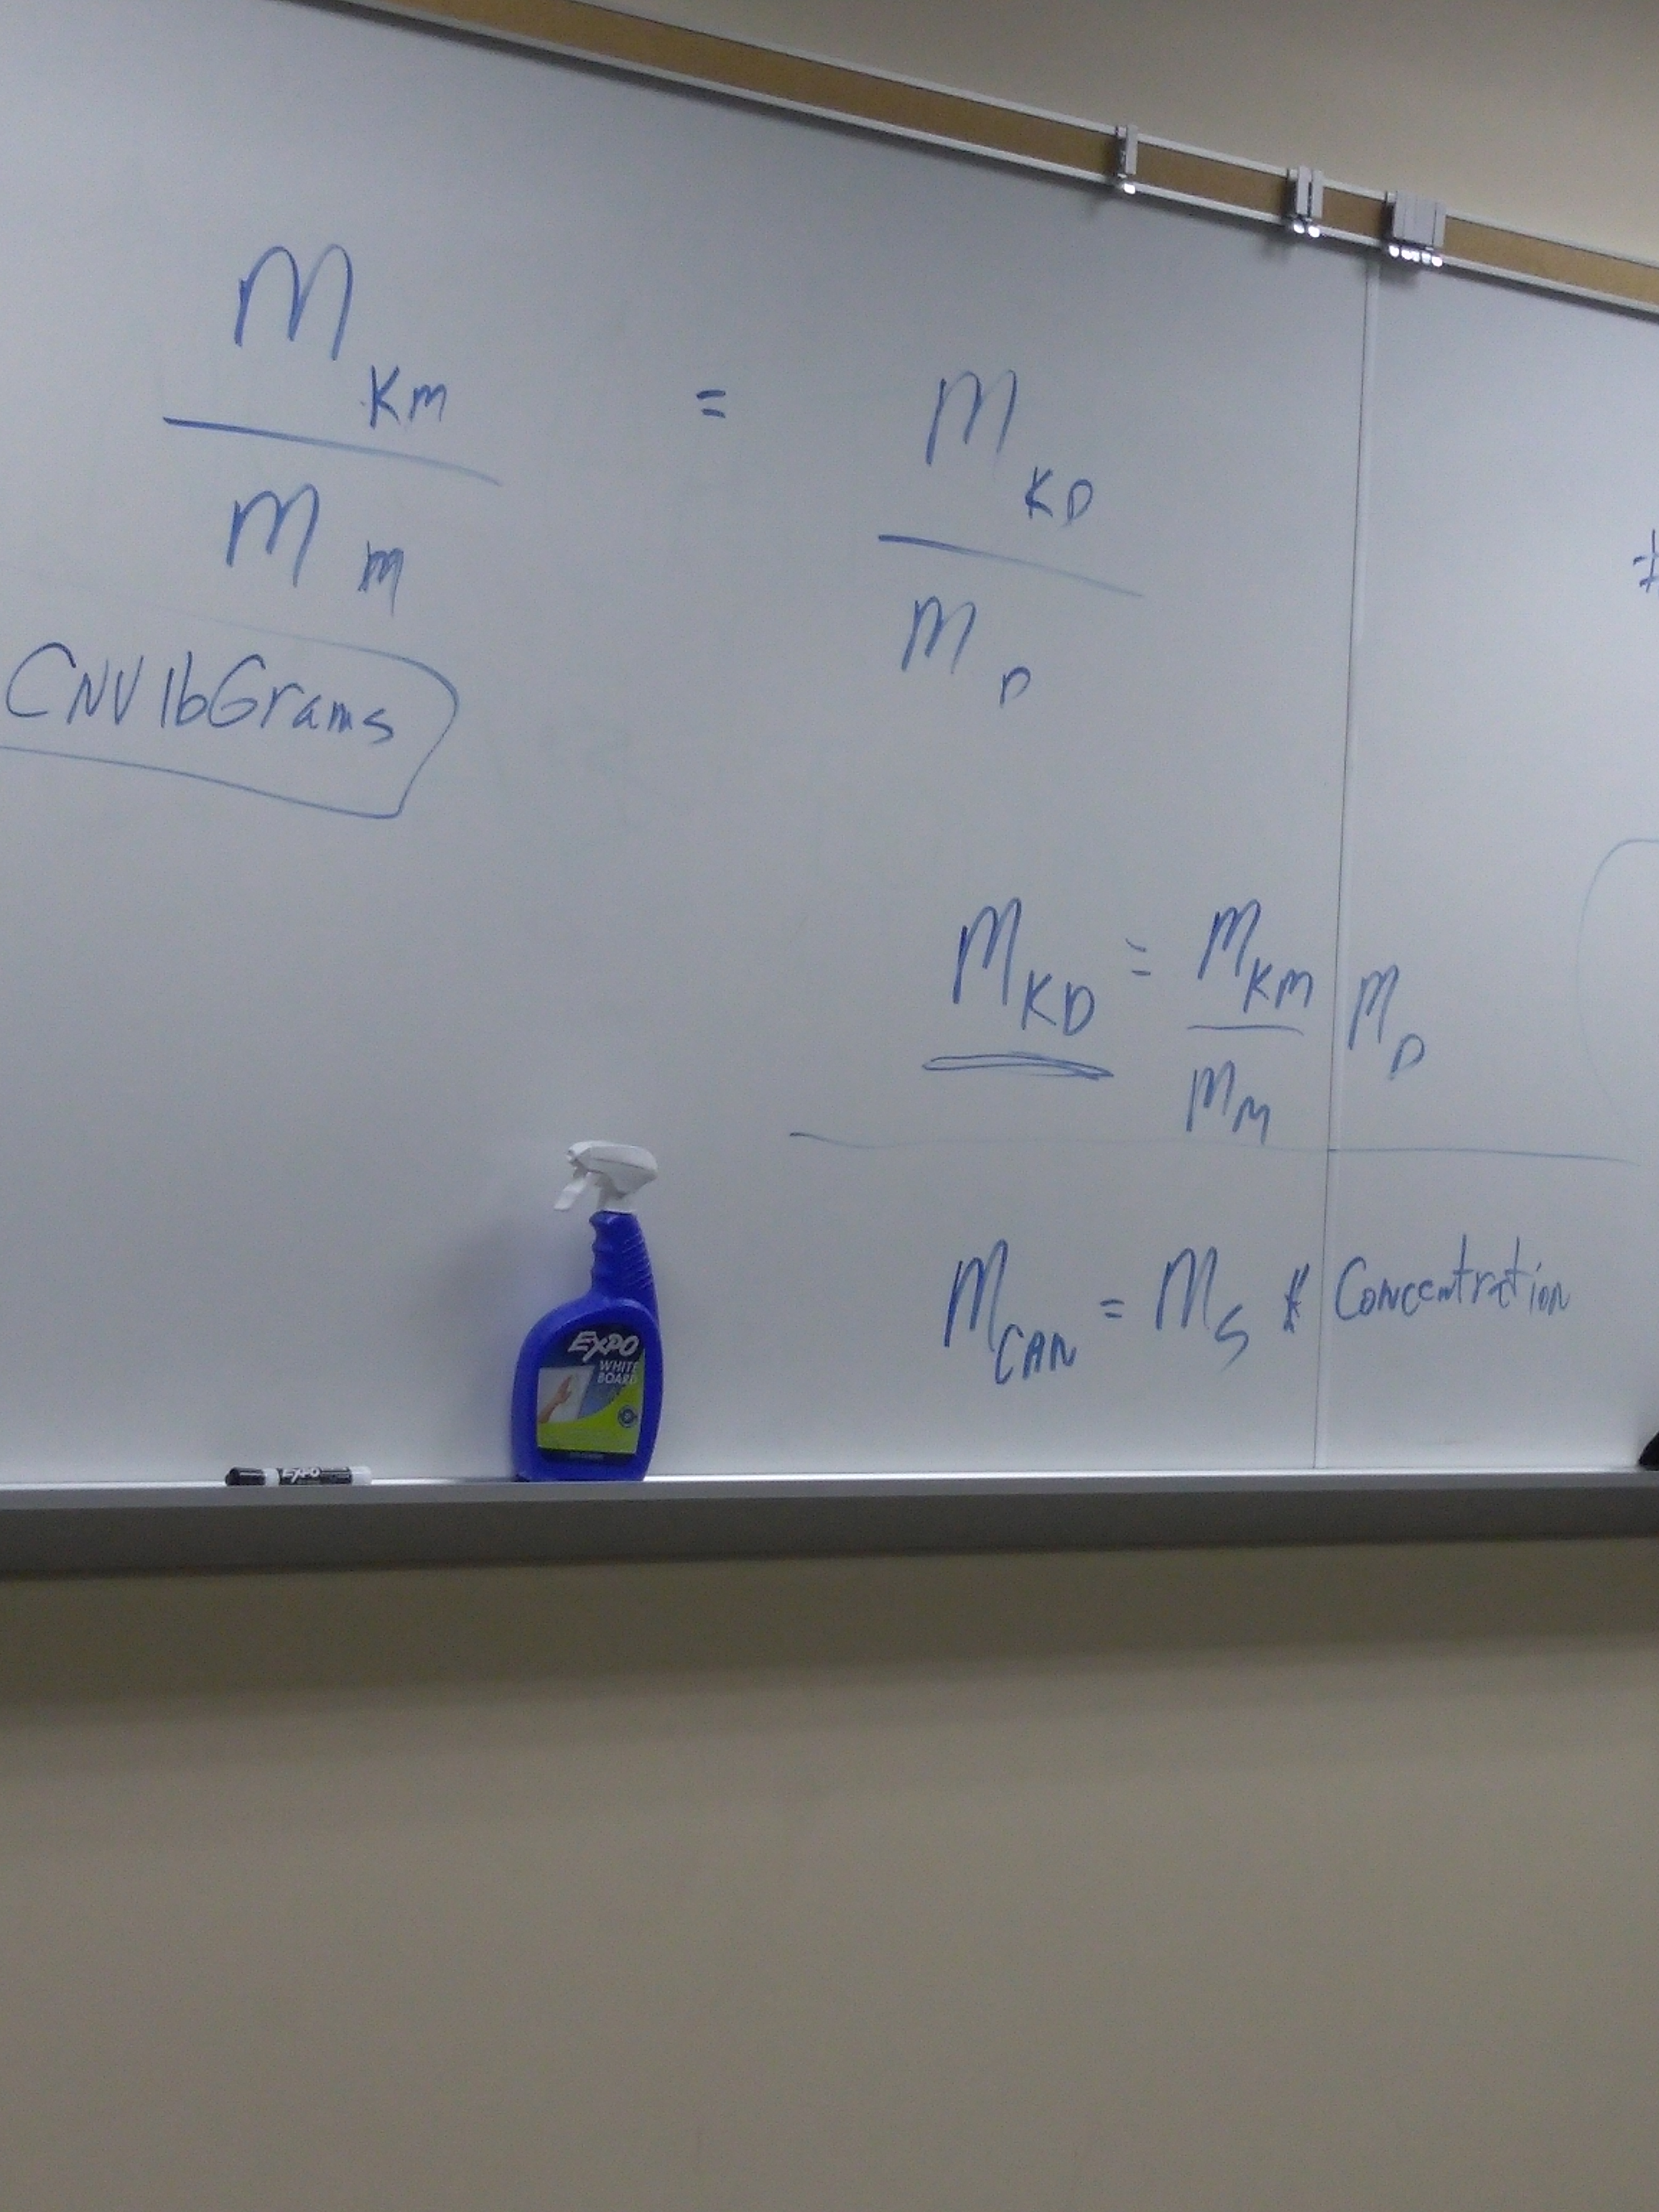 M KM = M KD
M M M D
CNV lbGrams
M KD = M KM M D
M M
M CAN = M S * Concentration
EXPO
WHITE
BOARD
EXPO